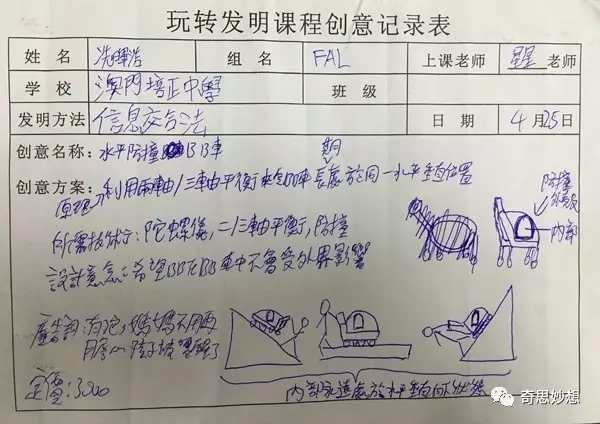 玩转发明课程创意记录表
姓 名 冼暐浩 组 名 FAL 上课老师 星星 老师
学 校 澳門培正中學 班 级
发明方法 信息交合法 日 期 4 月 25 日
创意名称: 水平防撞BB車
创意方案: 利用兩軸/三軸由平衡來令BB車長期處於同一水平垂直位置
原理
防撞
外殼
內部
所需技術: 陀螺儀,二/三軸由平衡,防撞
設計意念: 希望BB在BB車中不會受外界影響
廣告詞: 有佗,媽媽不用再
擔心孩子被嚇醒了
定價: 3800
內部永遠處於水平垂直向下狀態
奇思妙想